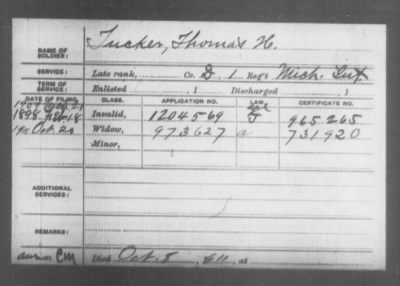 NAME OF SOLDIER: Tucker, Thomas H.
SERVICE: Late rank, Co. D, 1 Reg't Mich. Inf.
TERM OF SERVICE: Enlisted , 1 Discharged , 1
DATE OF FILING. CLASS. APPLICATION NO. LAW. CERTIFICATE NO.
1898 Invalid, 1204569 965265
1911 Oct. 20 Widow, 973627 731920
Minor,
ADDITIONAL SERVICES:
REMARKS:
Died Oct. 8, 1911, at